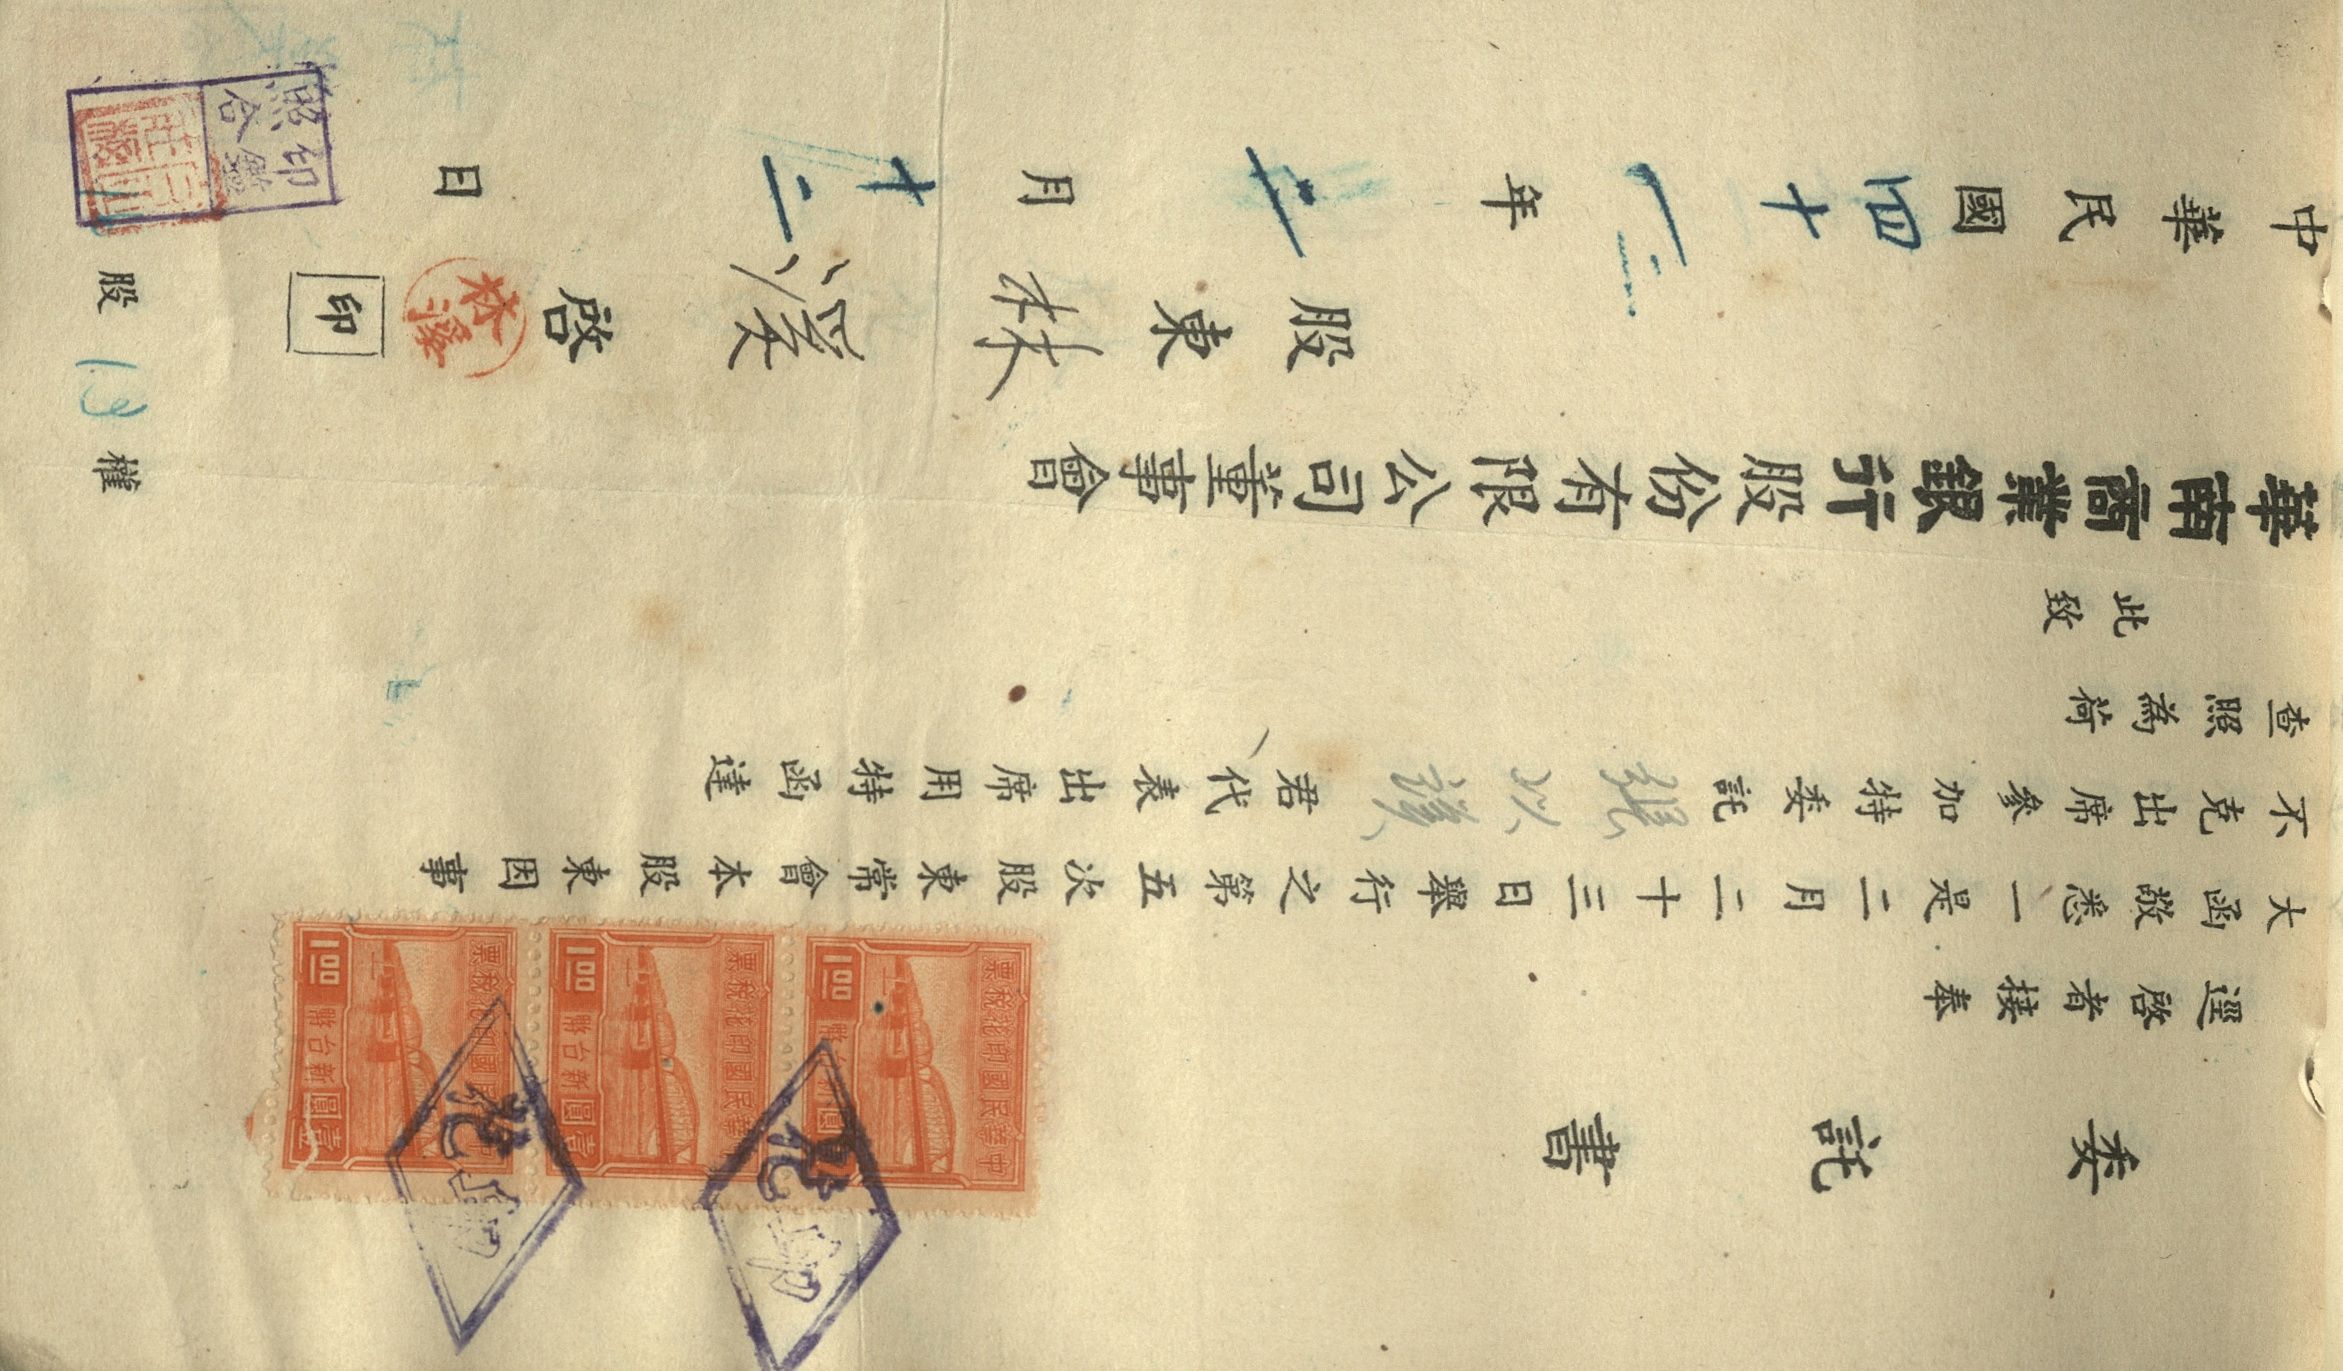 委託書
逕啓者接奉
大函敬悉一是二月二十三日舉行之第五次股東常會本股東因事
不克出席參加特委託張以謨君代表出席用特函達
查照為荷
此致
華南商業銀行股份有限公司董事會
股東林濚啓
印
中華民國四十一年二月十二日
股 權
印鑑
照合
中華民國印花稅票
壹圓新台幣
1.00
中華民國印花稅票
壹圓新台幣
1.00
中華民國印花稅票
壹圓新台幣
1.00